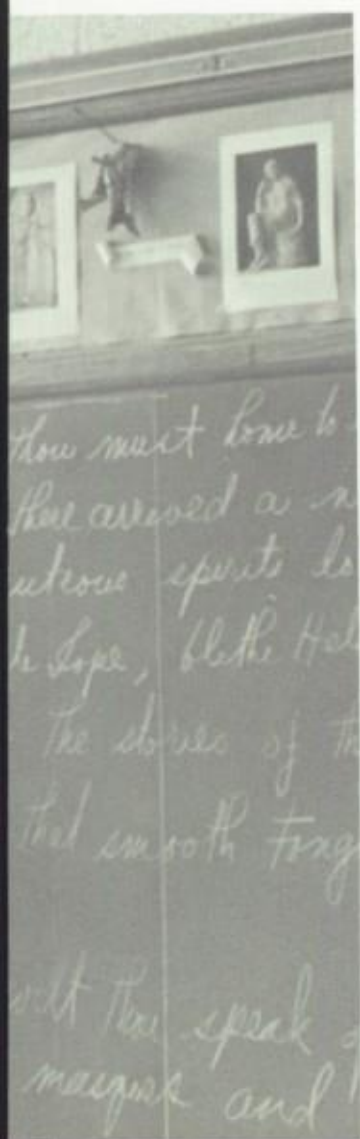 thou must home to
there arrived a n
uteous spirits do
te Iope, blithe Hel
the stories of th
that smooth tong
wilt thou speak
masques and